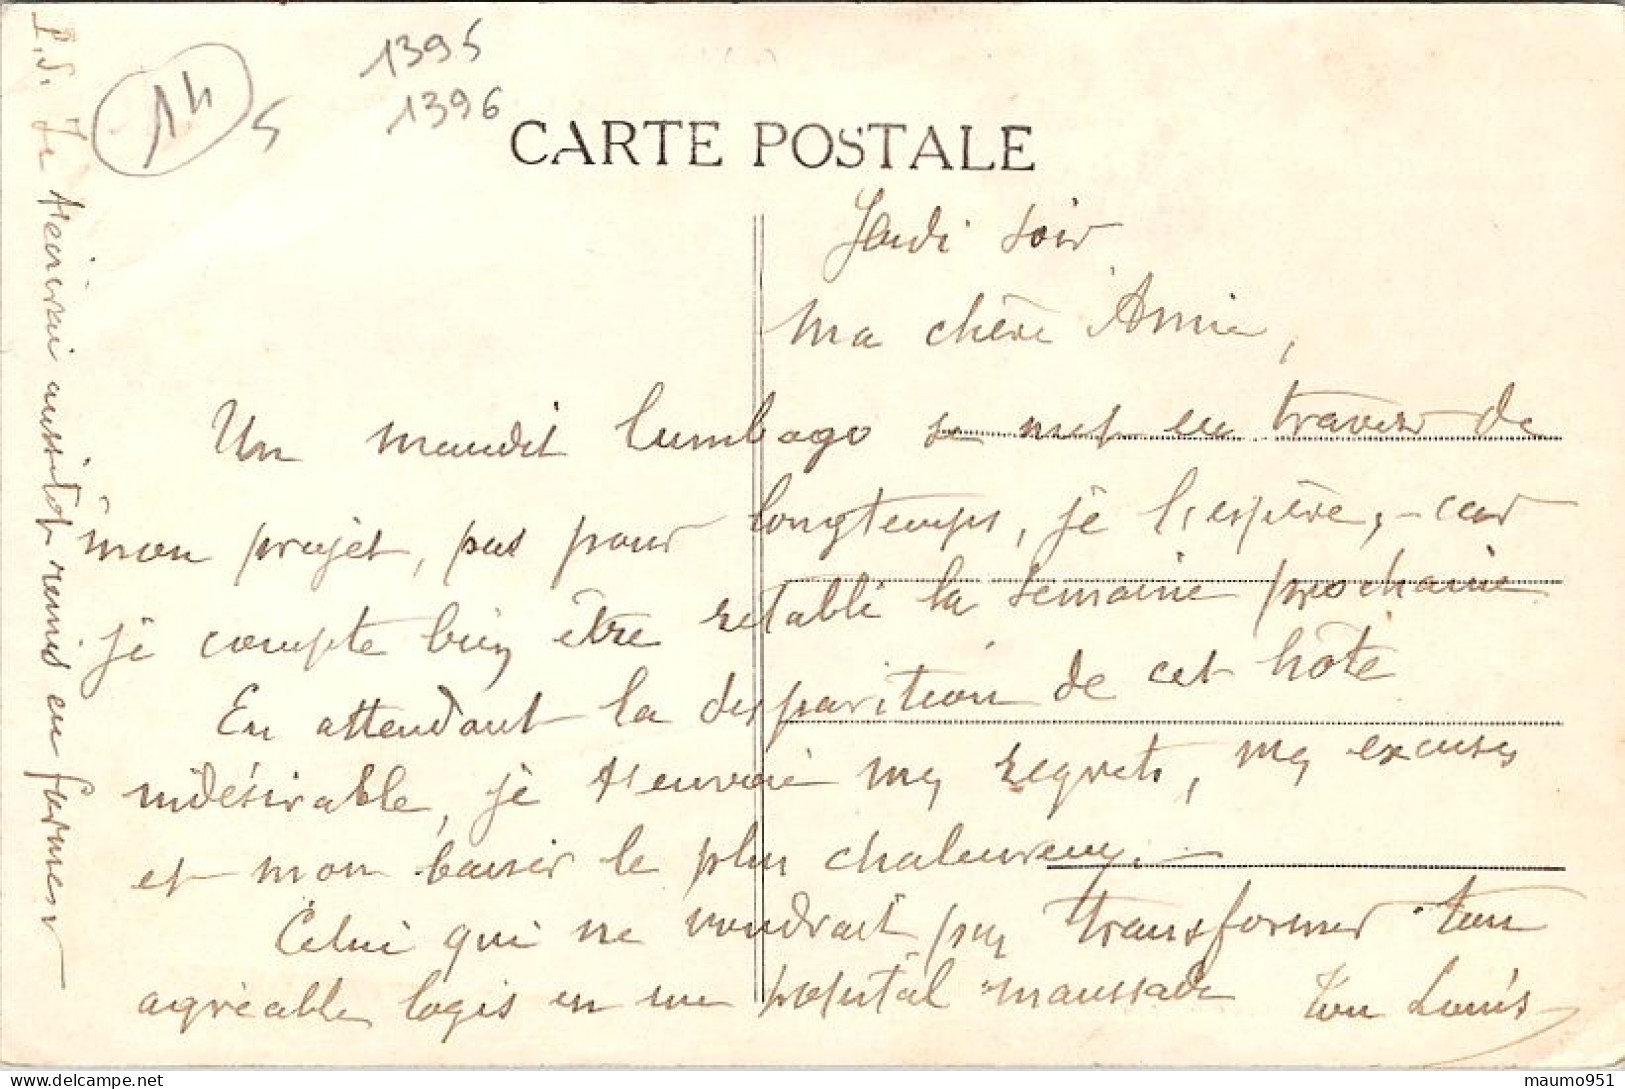 1395
1396
14
5
CARTE POSTALE
Jeudi soir
Ma chère Amie,
Un maudit lumbago se met en travers de
mon projet, pas pour longtemps, je l'espère, - car
je compte bien être rétabli la semaine prochaine
En attendant la disparition de cet hôte
indésirable, je t'envoie mes regrets, mes excuses
et mon baiser le plus chaleureux. -
Celui qui ne voudrait pas transformer ton
agréable logis en un hôpital maussade
Ton Louis
P.S. Je t'écrirai aussitôt remis en forme
delcampe.net
maumo951